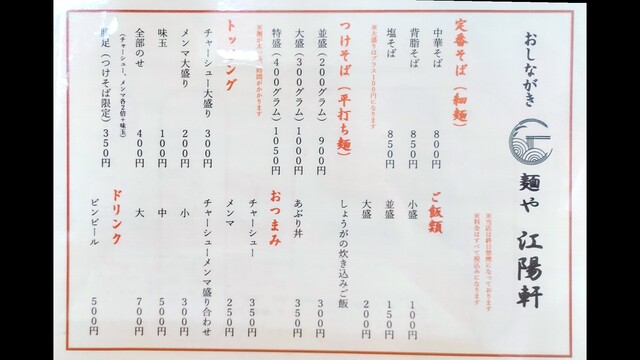 おしながき
麺や 江陽軒
※当店は終日禁煙になっております
※料金はすべて税込みになります
定番そば（細麺）
中華そば 800円
背脂そば 850円
塩そば 850円
※大盛りはプラス100円になります
つけそば（平打ち麺）
並盛（200グラム）900円
大盛（300グラム）1000円
特盛（400グラム）1050円
※麺が太い為、時間がかかります
トッピング
チャーシュー大盛り 300円
メンマ大盛り 200円
味玉 100円
全部のせ 400円
（チャーシュー、メンマ各2倍+味玉）
豚足（つけそば限定）350円
ご飯類
小盛 100円
並盛 150円
大盛 200円
しょうがの炊き込みご飯 300円
あぶり丼 350円
おつまみ
チャーシュー 350円
メンマ 250円
チャーシューメンマ盛り合わせ
小 300円
中 500円
大 700円
ドリンク
ビンビール 500円